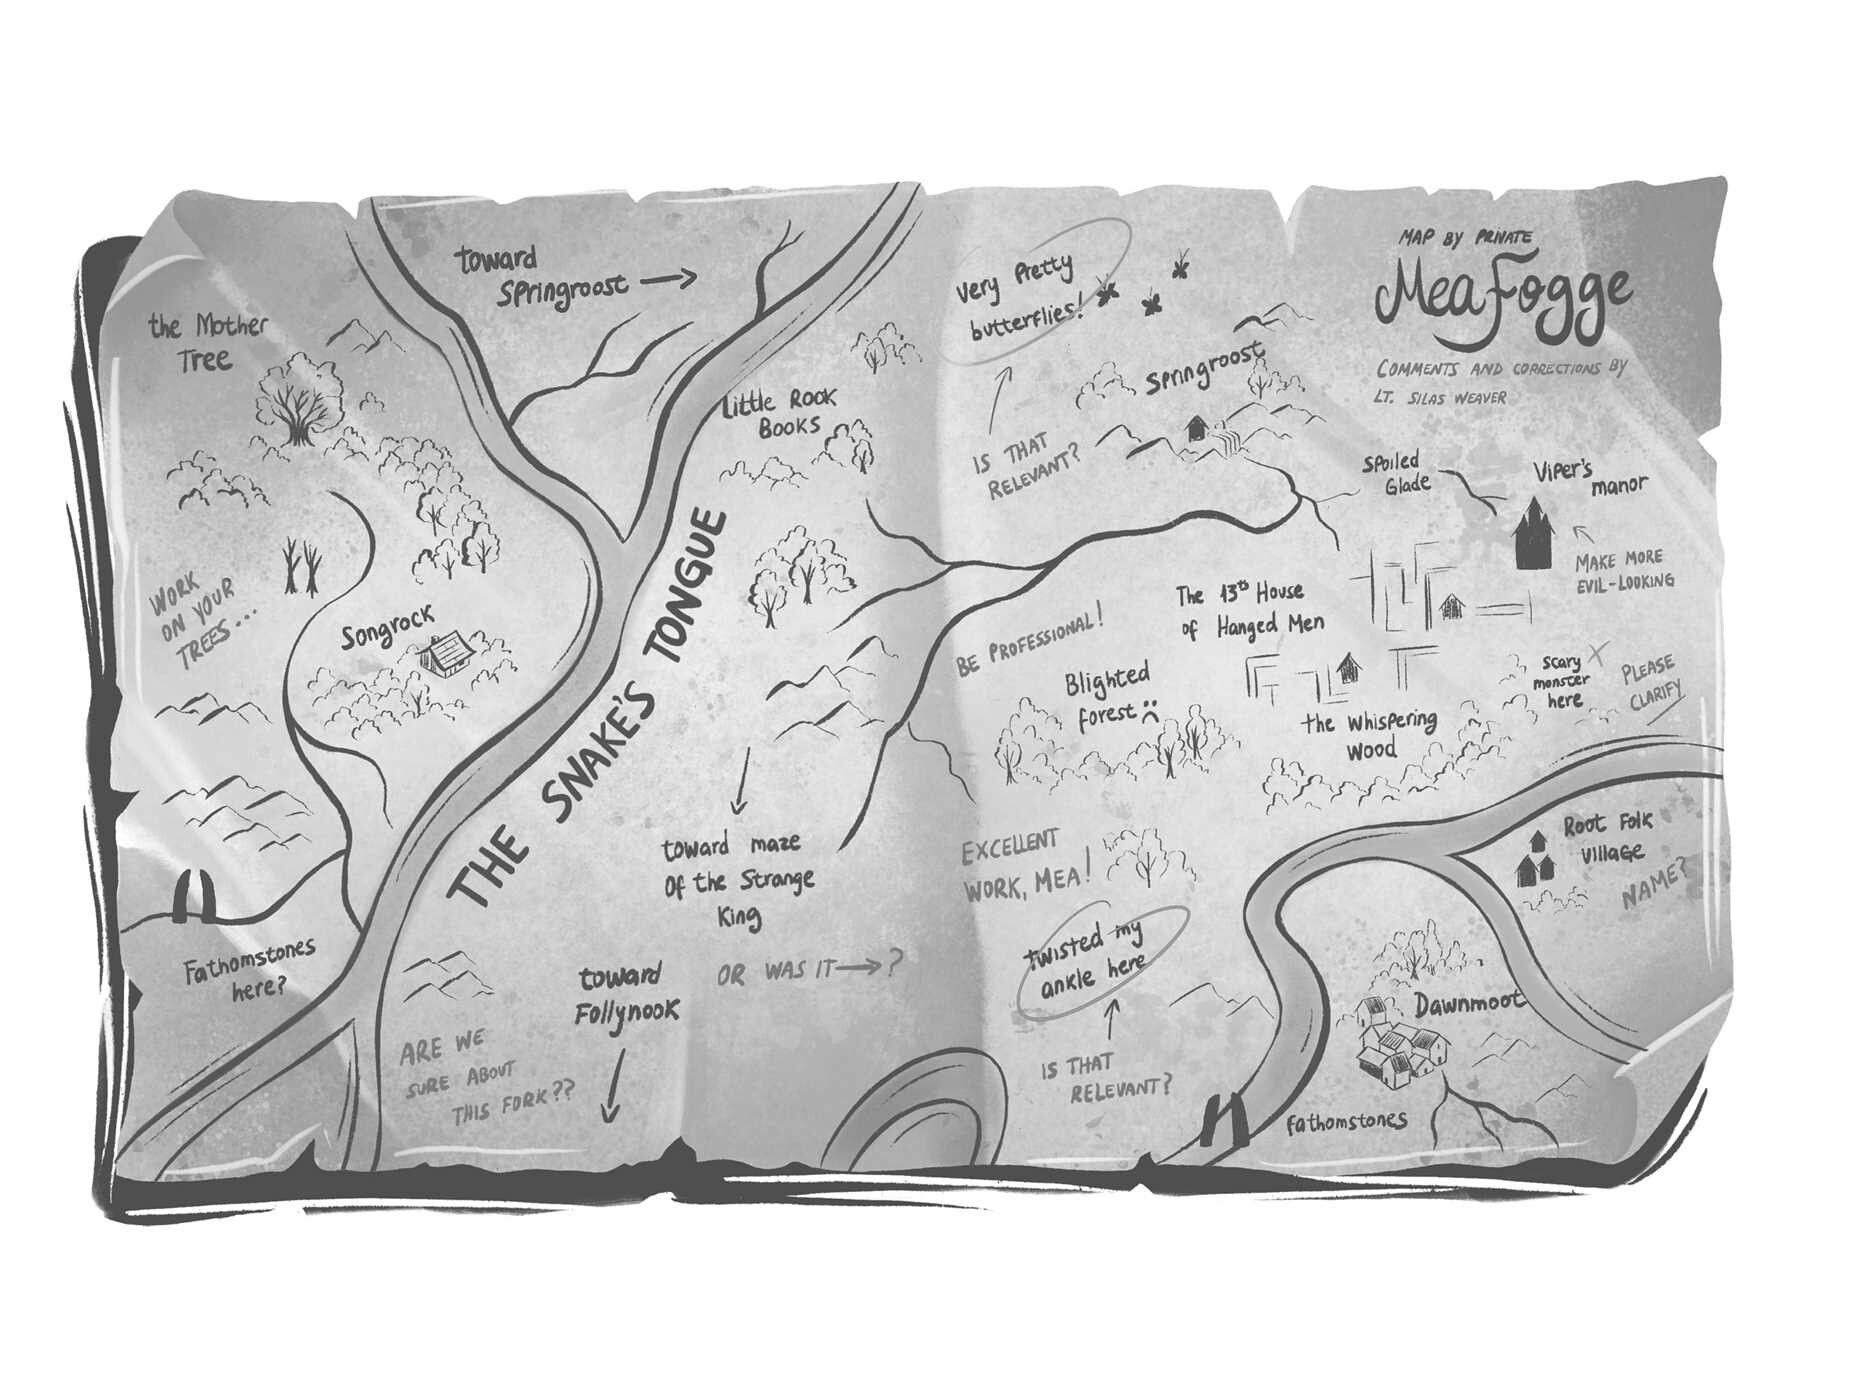 toward
Springroost
the Mother
Tree
Little Rook
Books
WORK
ON YOUR
TREES...
Songrock
THE SNAKE'S TONGUE
toward maze
Of the Strange
King
OR WAS IT ?
Fathomstones
here?
toward
Follynook
ARE WE
SURE ABOUT
THIS FORK??
very pretty
butterflies!
IS THAT
RELEVANT?
Springroost
MAP BY PRIVATE
Mea Fogge
COMMENTS AND CORRECTIONS BY
LT. SILAS WEAVER
Spoiled
Glade
Viper's
manor
MAKE MORE
EVIL-LOOKING
The 13th House
of Hanged Men
BE PROFESSIONAL!
Blighted
forest
the Whispering
Wood
scary
monster
here
PLEASE
CLARIFY
EXCELLENT
WORK, MEA!
Root Folk
village
NAME?
twisted my
ankle here
IS THAT
RELEVANT?
Dawnmoot
fathomstones